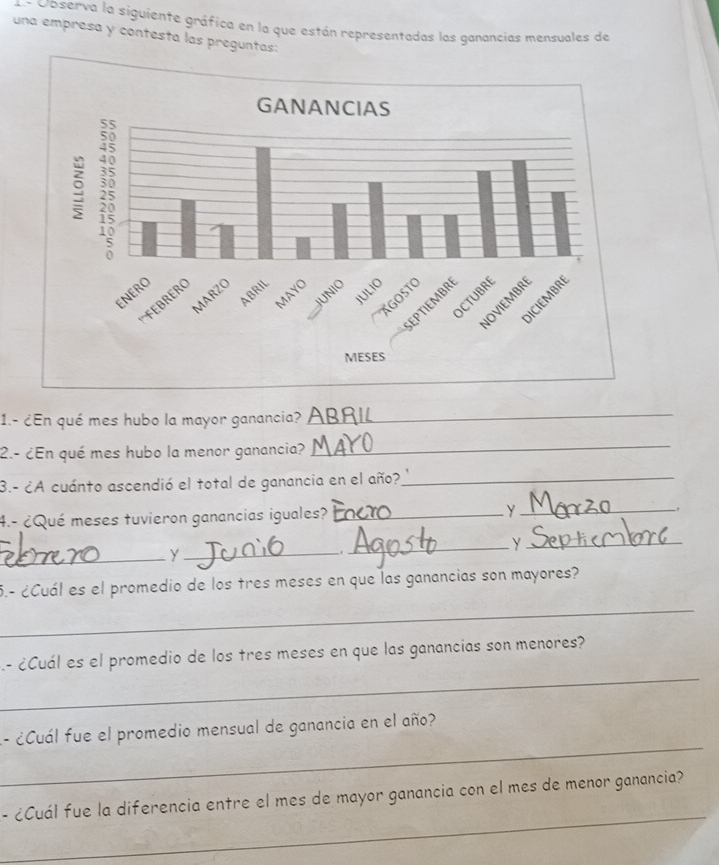 1.- Observa la siguiente gráfica en la que están representadas las ganancias mensuales de
una empresa y contesta las preguntas:
GANANCIAS
MILLONES
55
50
45
40
35
30
25
20
15
10
5
0
ENERO
FEBRERO
MARZO
ABRIL
MAYO
JUNIO
JULIO
AGOSTO
SEPTIEMBRE
OCTUBRE
NOVIEMBRE
DICIEMBRE
MESES
1.- ¿En qué mes hubo la mayor ganancia? ABRIL
2.- ¿En qué mes hubo la menor ganancia? MAYO
3.- ¿A cuánto ascendió el total de ganancia en el año?
4.- ¿Qué meses tuvieron ganancias iguales? Enero y Marzo.
Febrero y Junio. Agosto y Septiembre
5.- ¿Cuál es el promedio de los tres meses en que las ganancias son mayores?
.- ¿Cuál es el promedio de los tres meses en que las ganancias son menores?
.- ¿Cuál fue el promedio mensual de ganancia en el año?
.- ¿Cuál fue la diferencia entre el mes de mayor ganancia con el mes de menor ganancia?